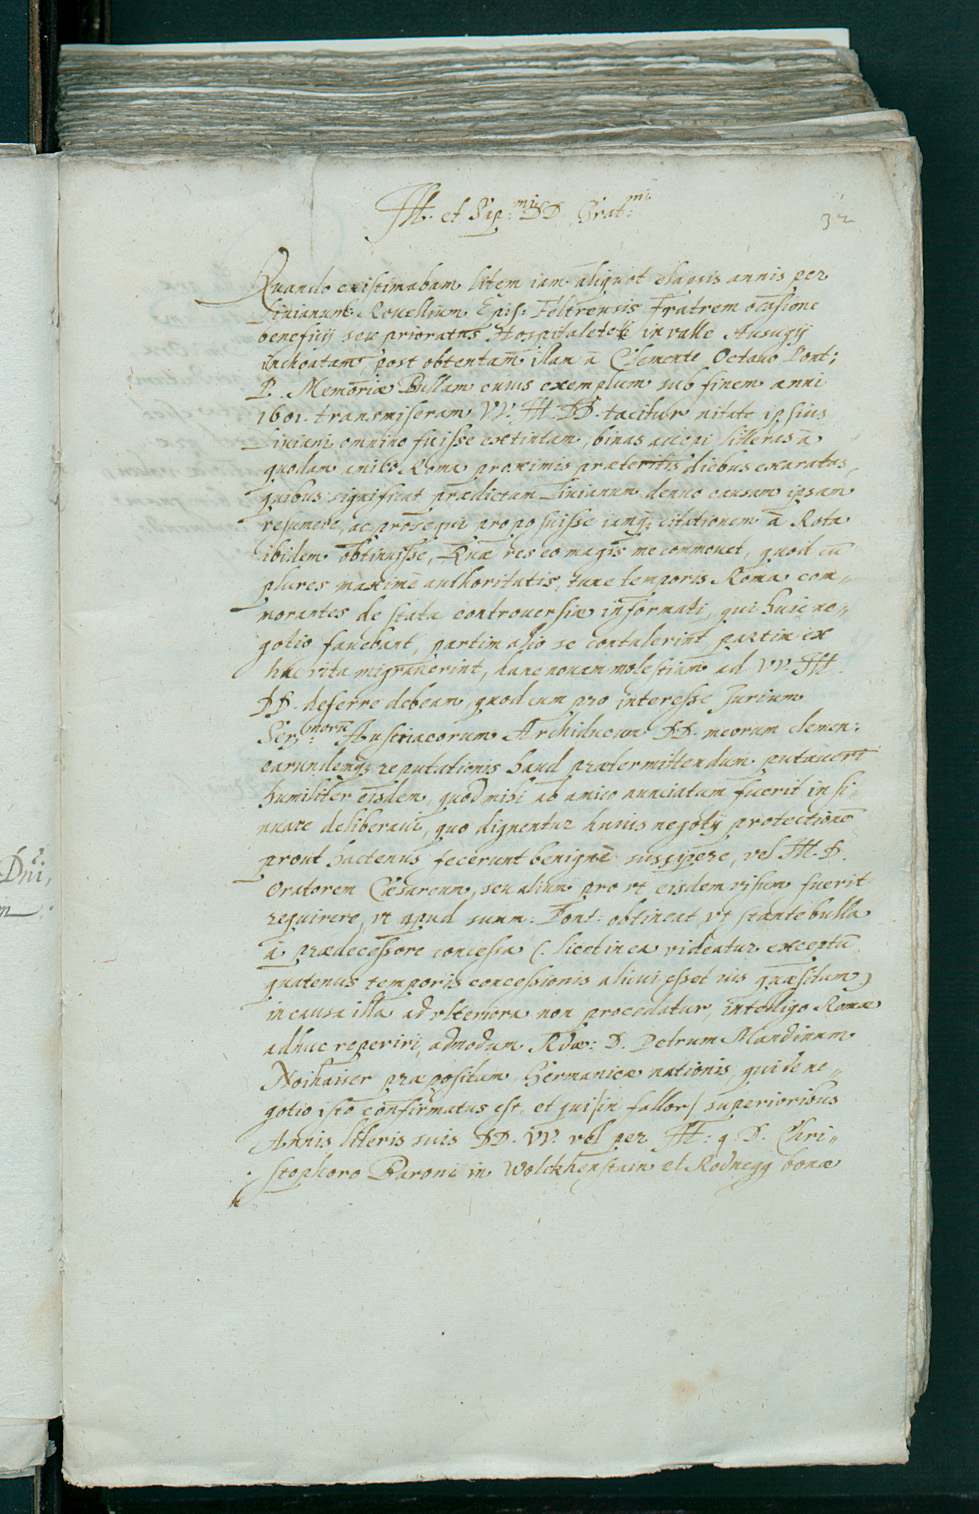 Ill. et Sap:mi DD Grat:mi
32
Quando existimabam litem iam aliquot elapsis annis per
Livianum Rovellium Epis: Feltrensis Fratrem occasione
beneficij seu prioratus Hospitaletti in valle Ausugij
inchoatam, post obtentam illam à Clemente Octavo Pont:
P. Memoriæ Bullam cuius exemplum sub finem anni
1601. transmiseram VV. Ill. DD. taciturnitate ipsius
Liviani omnino fuisse extintam, binas accepi litteras à
quodam amico Roma proximis præteritis diebus exaratas
quibus significat prædictam Livianum denuo causam ipsam
resumere, ac prosequi proposuisse iamq; citationem à Rota
ibidem obtinuisse, Quæ res eo magis me commovet, quod cū
plures maximè authoritatis, tunc temporis Roma com„
morantes de statu controversiæ informati, qui huic ne„
gotio favebant, partim alio se contulerint partim ex
hac vita migraverint, hanc novam molestiam ad VV. Ill.
DD. deferre debeam, quod cum pro interesse Jurium
Ser:morū Austriacorum Archiducum DD. meorum clemen:
earundemq; reputationis haud prætermittendum putaverī
humiliter eisdem, quod mihi ab amico nunciatum fuerit insi„
nuare deliberavi, quo dignentur huius negotij protectionē
prout hactenus fecerunt benignè suscipere, vel Ill. D.
Oratorem Cæsareum, seu alium pro ut eisdem visum fuerit
requirere, ut apud sum: Pont: obtineat, ut stante bulla
à prædecessore concessa (: licet in ea videatur exceptū
quatenus temporis concessionis alicui esset ius quæsitum)
in causa illa ad ulteriora non procedatur, intelligo Romæ
adhuc reperiri, admodum Rdū: D. Petrum Mandinum
Noihaiser præpositum Germanicæ nationis, qui de ne„
gotio isto confirmatus est, et qui sin fallor/ superioribus
Annis literis suis DD. VV. vel per Ill: q D. Chri„
stophoro Baroni in Wolckhenstain et Rodnegg bonæ
Dni,